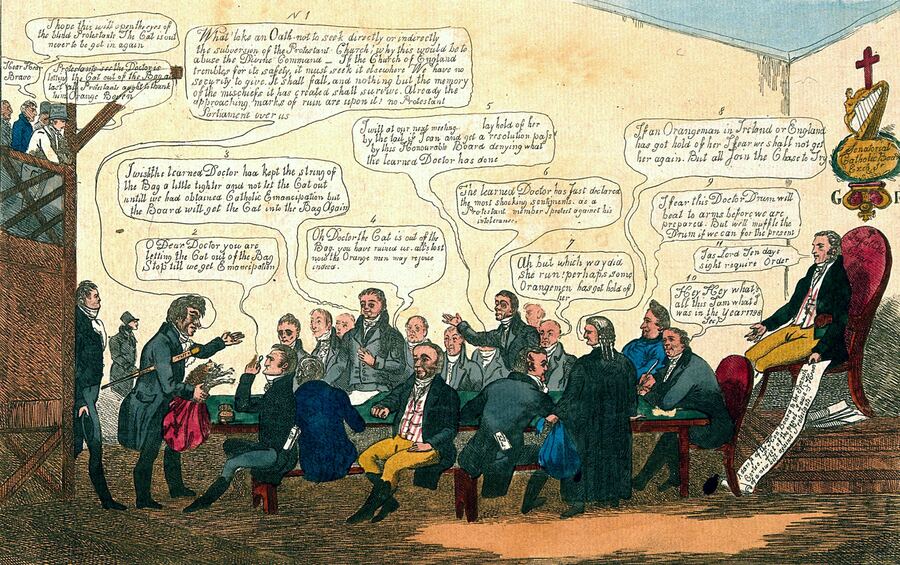 I hope this will open the eyes of
the blind Protestants The Cat is out
never to be get in again
Hear Hear
Bravo
Protestants see the Doctor is
leting the Cat out of the Bag at
last all Protestants ought to thank
him Orange Boven
N 1
What take an Oath not to seek directly or indirectly
the subversion of the Protestant Church! why this would be to
abuse the Divine Command _ If the Church of England
trembles for its safety, it must seek it elsewhere We have no
security to give. It shall fall, and nothing but the memory
of the mischiefs it has created shall survive. Already the
approaching marks of ruin are upon it! no Protestant
Parliament over us
2
O Dear Doctor you are
letting the Cat out of the Bag
Stop till we get Emancipation
3
I wish the learned Doctor had kept the string of
the Bag a little tighter and not let the Cat out
untill we had obtained Catholic Emancipation but
the Board will get the Cat into the Bag Again
4
Oh Doctor the Cat is out of the
Bag. you have ruined us. all's lost
now the Orange men may rejoice
indeed.
5
I will at our next meeting lay hold of her
by the tail if I can and get a resolution pass'd
by this Honourable Board denying what
the learned Doctor has done
6
The learned Doctor has just declared
the most shocking sentiments. as a
Protestant member I protest against his
intolerance.
7
Ah but which way did
she run! perhaps some
Orangemen has got hold of
her
8
If an Orangeman in Ireland or England
has got hold of her I fear we shall not get
her again. But all join the Chase to Try
9
I fear this Doctor Drum will
beat to arms before we are
prepared. But we'll muffle the
Drum if we can for the present
11
Jas Lord Ten days
sight require Order
10
Hey Hey what's
all this I am what I
was in the Year 1798
Senatorial
Catholic Board
G